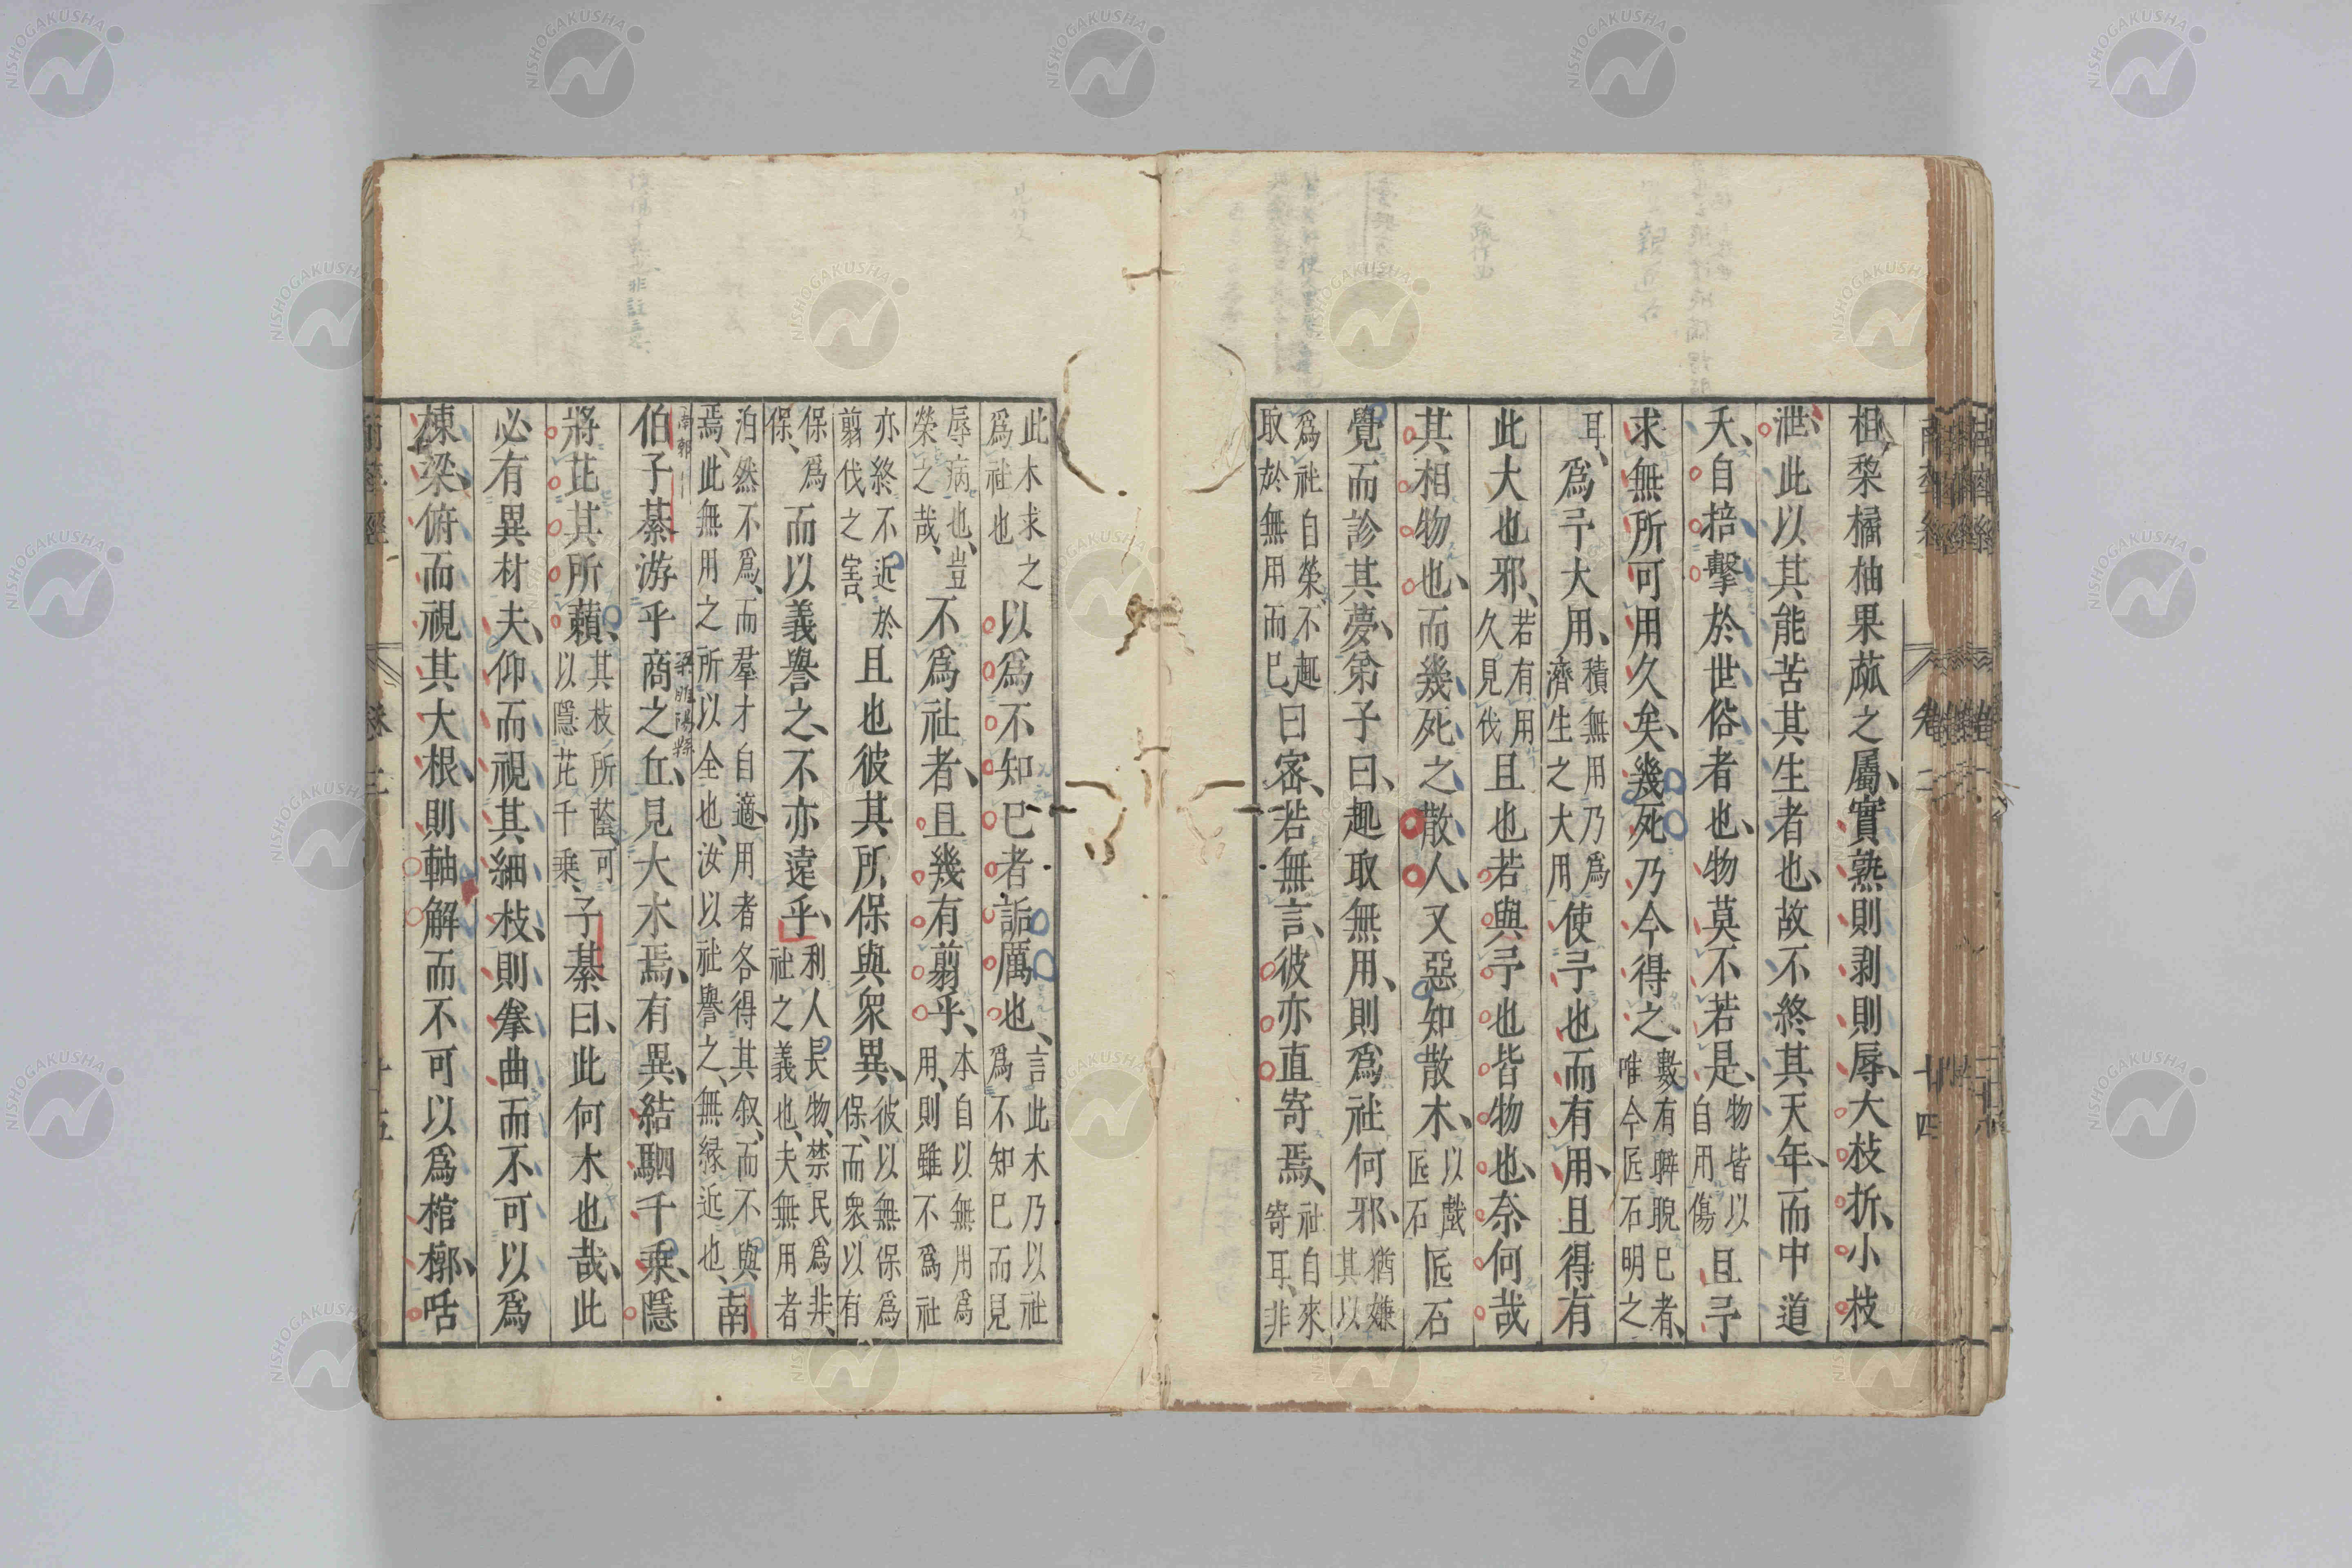 柤棃橘柚果蓏之屬、實熟則剥則辱、大枝折、小枝
泄、此以其能苦其生者也、故不終其天年、而中道
夭、自掊擊於世俗者也、物莫不若是、物皆以自用傷且予
求無所可用久矣、幾死乃今得之、數有睥睨已者、唯今匠石明之
耳、爲予大用、積無用乃爲濟生之大用使予也而有用、且得有
此大也邪、若有用久見伐且也若與予也皆物也、奈何哉
其相物也、而幾死之散人、又惡知散木、以戲匠石匠石
覺而診其夢、弟子曰、趣取無用、則爲社何邪、猶嫌其以
爲社自榮、不趣取於無用而已、曰密、若無言、彼亦直寄焉、社自來寄耳、非
此木求之爲社也以爲不知已者詬厲也、言此木乃以社爲不知已而見
辱病也、豈榮之哉、不爲社者、且幾有翦乎、本自以無用爲用、則雖不爲社
亦終不近於翦伐之害、且也彼其所保與衆異、彼以無保爲保、而衆以有
保爲保、而以義譽之、不亦遠乎、利人長物、禁民爲非、社之義也、夫無用者
泊然不爲、而羣才自適、用者各得其叙、而不與焉、此無用之所以全也、汝以社譽之、無緣近也、南
伯子綦游乎商之丘、見大木焉、有異、結駟千乘、隱
將芘其所藾、其枝所蔭、可以隱芘千乘、子綦曰、此何木也哉、此
必有異材夫、仰而視其細枝、則拳曲而不可以爲
棟梁、俯而視其大根、則軸解而不可以爲棺槨、咶